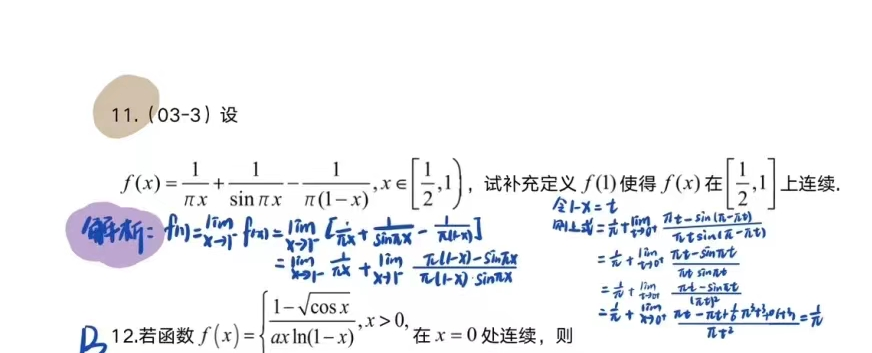 11.（03-3）设
f(x)=1/(πx)+1/(sin πx)-1/(π(1-x)), x∈[1/2,1), 试补充定义 f(1)使得 f(x)在[1/2,1]上连续.
解析: f(1)=lim_{x→1⁻} f(x)=lim_{x→1⁻}[1/(πx)+1/(sinπx)-1/(π(1-x))]
=lim_{x→1⁻} 1/(πx)+lim_{x→1⁻} (π(1-x)-sinπx)/(π(1-x)·sinπx)
令1-x=t
则上式=1/π+lim_{t→0⁺} (πt-sin(π-πt))/(πt sin(π-πt))
=1/π+lim_{t→0⁺} (πt-sinπt)/(πt sinπt)
=1/π+lim_{t→0⁺} (πt-sinπt)/(πt)²
B 12.若函数 f(x)={(1-√cos x)/(ax ln(1-x)), x>0, 在 x=0 处连续，则